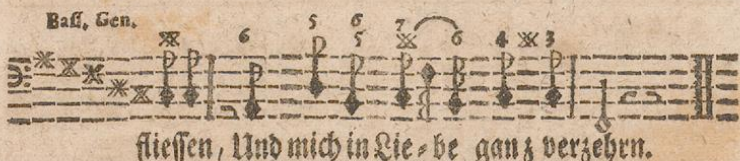 Baſſ. Gen.
6 5 6 5 7 6 4 3
flieſſen, Und mich in Lie-be ganz verzehrn.